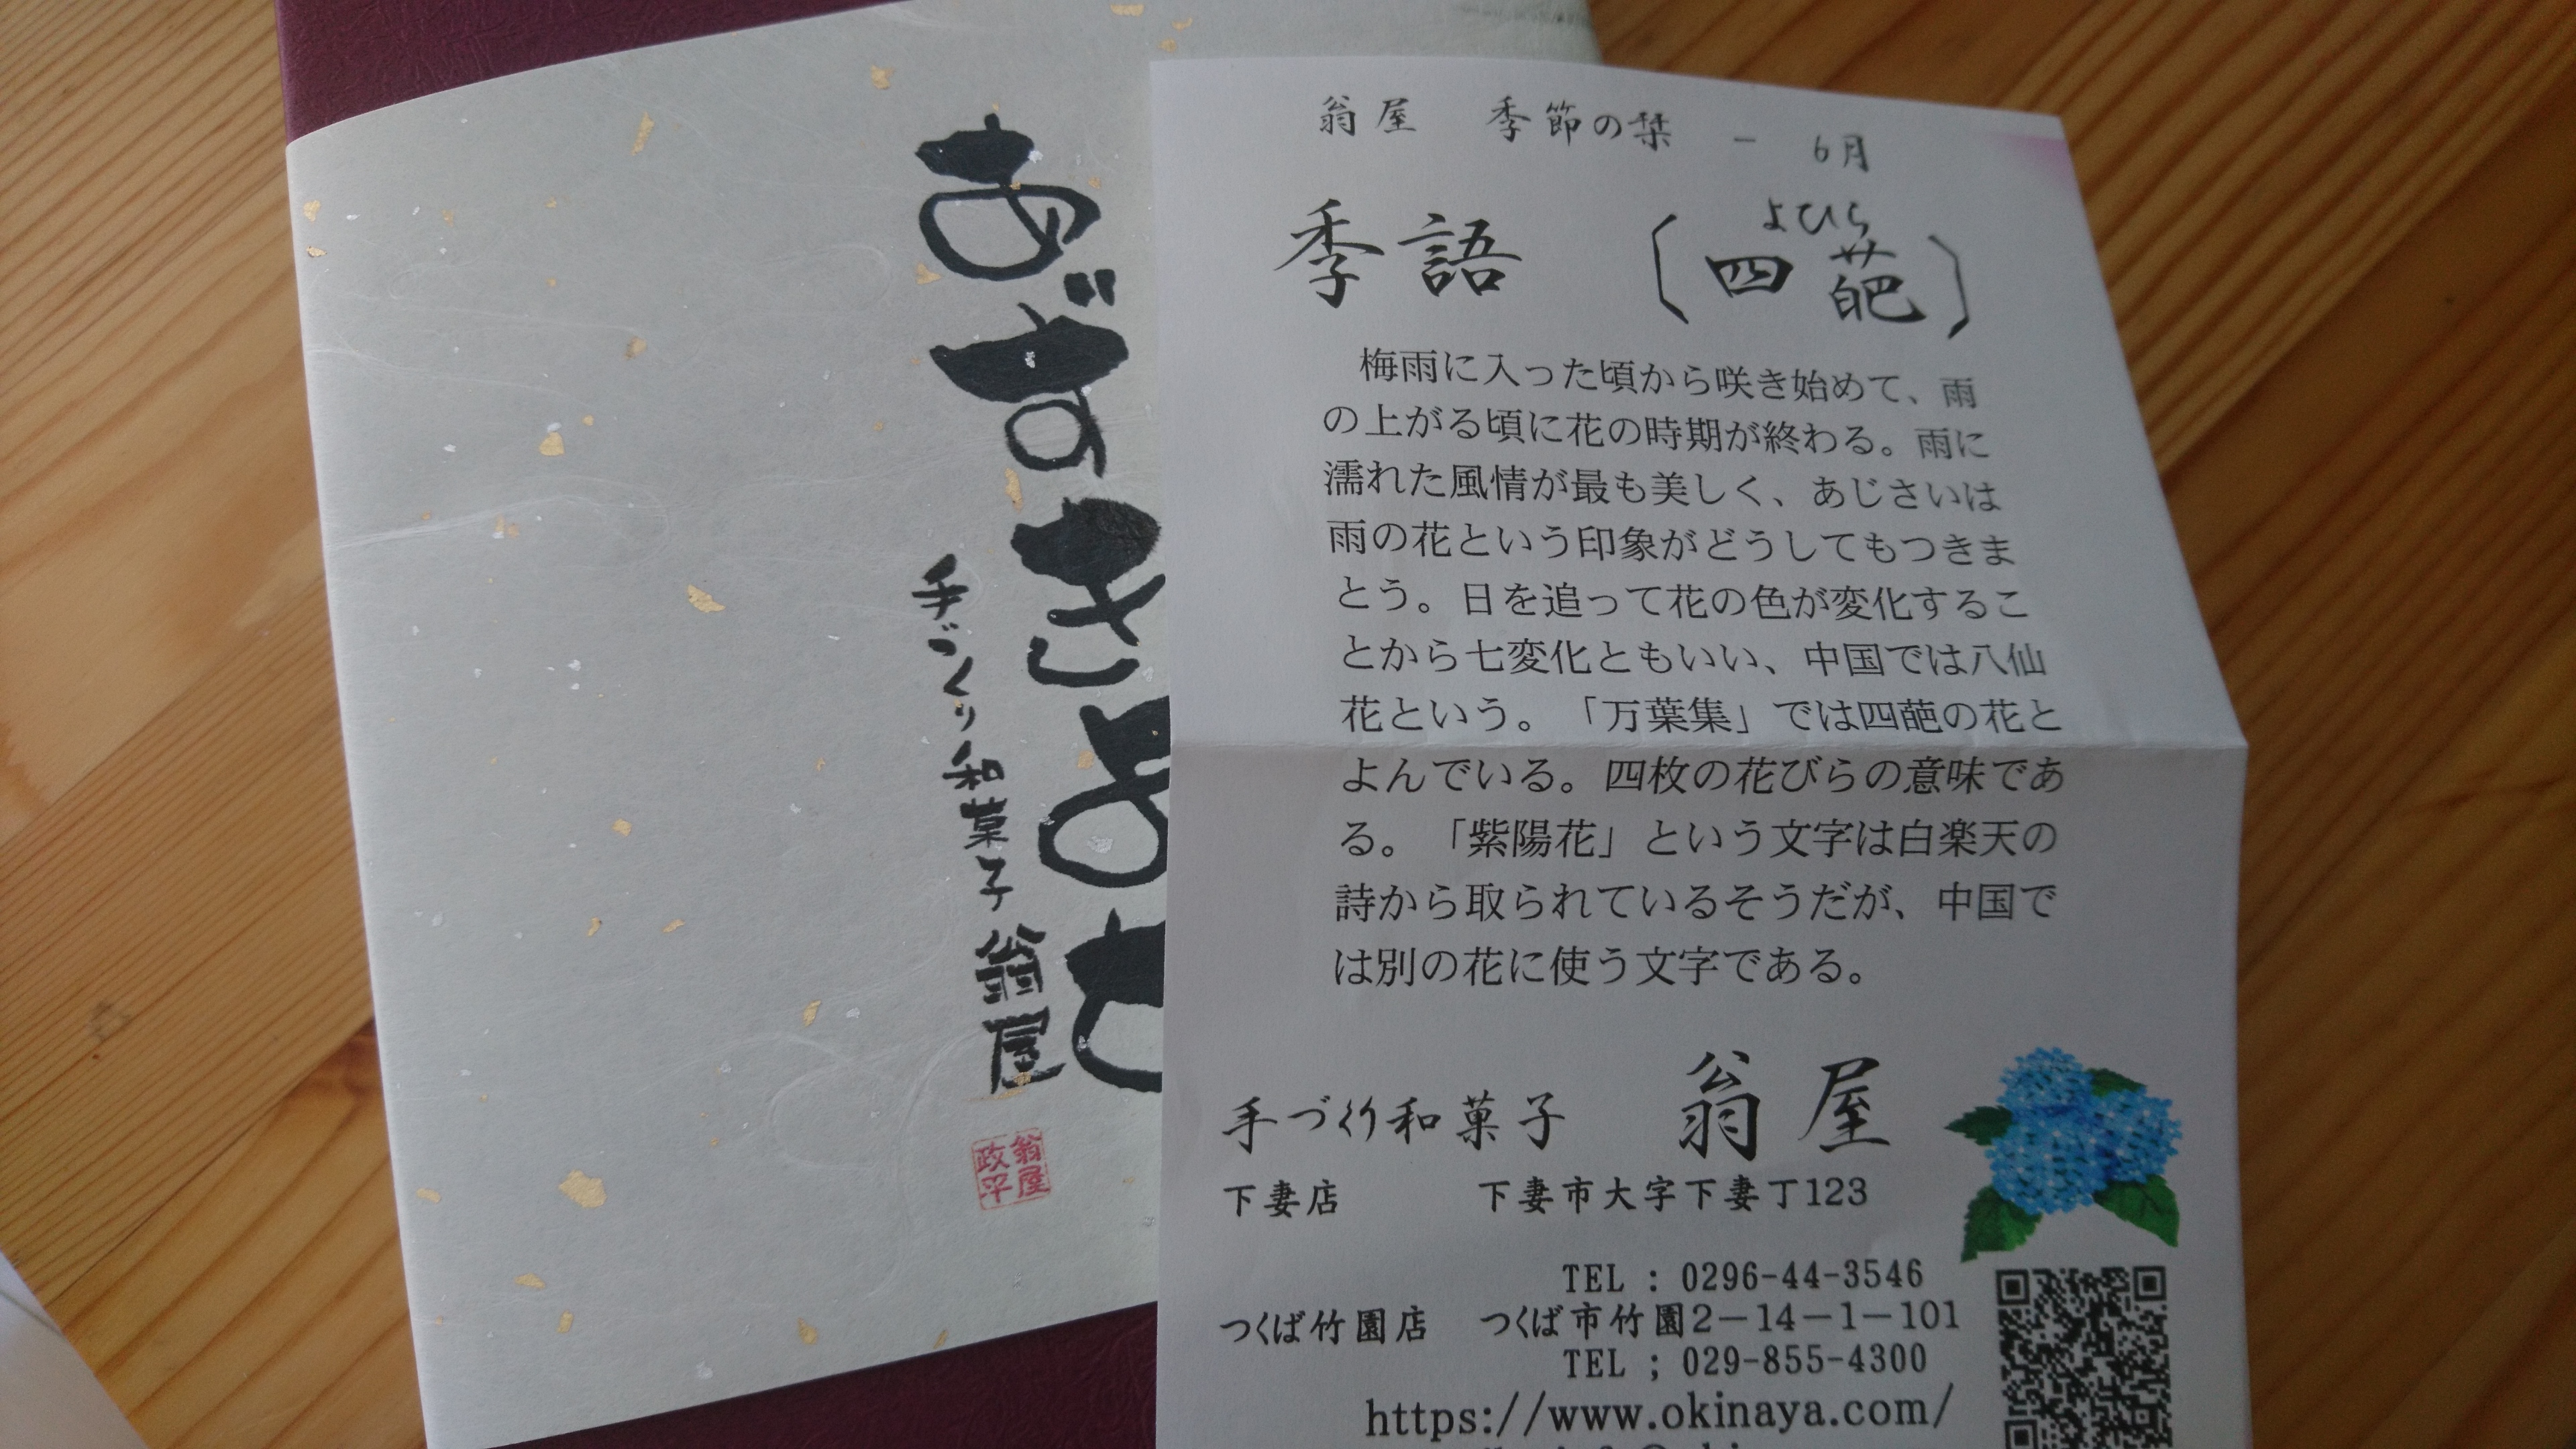 あずきよせ
手づくり和菓子 翁屋
翁屋
政平
翁屋 季節の栞 － 6月
よひら
季語 〔四葩〕
梅雨に入った頃から咲き始めて、雨
の上がる頃に花の時期が終わる。雨に
濡れた風情が最も美しく、あじさいは
雨の花という印象がどうしてもつきま
とう。日を追って花の色が変化するこ
とから七変化ともいい、中国では八仙
花という。「万葉集」では四葩の花と
よんでいる。四枚の花びらの意味であ
る。「紫陽花」という文字は白楽天の
詩から取られているそうだが、中国で
は別の花に使う文字である。
手づくり和菓子 翁屋
下妻店 下妻市大字下妻丁123
TEL : 0296-44-3546
つくば竹園店 つくば市竹園2－14－1－101
TEL ; 029-855-4300
https://www.okinaya.com/